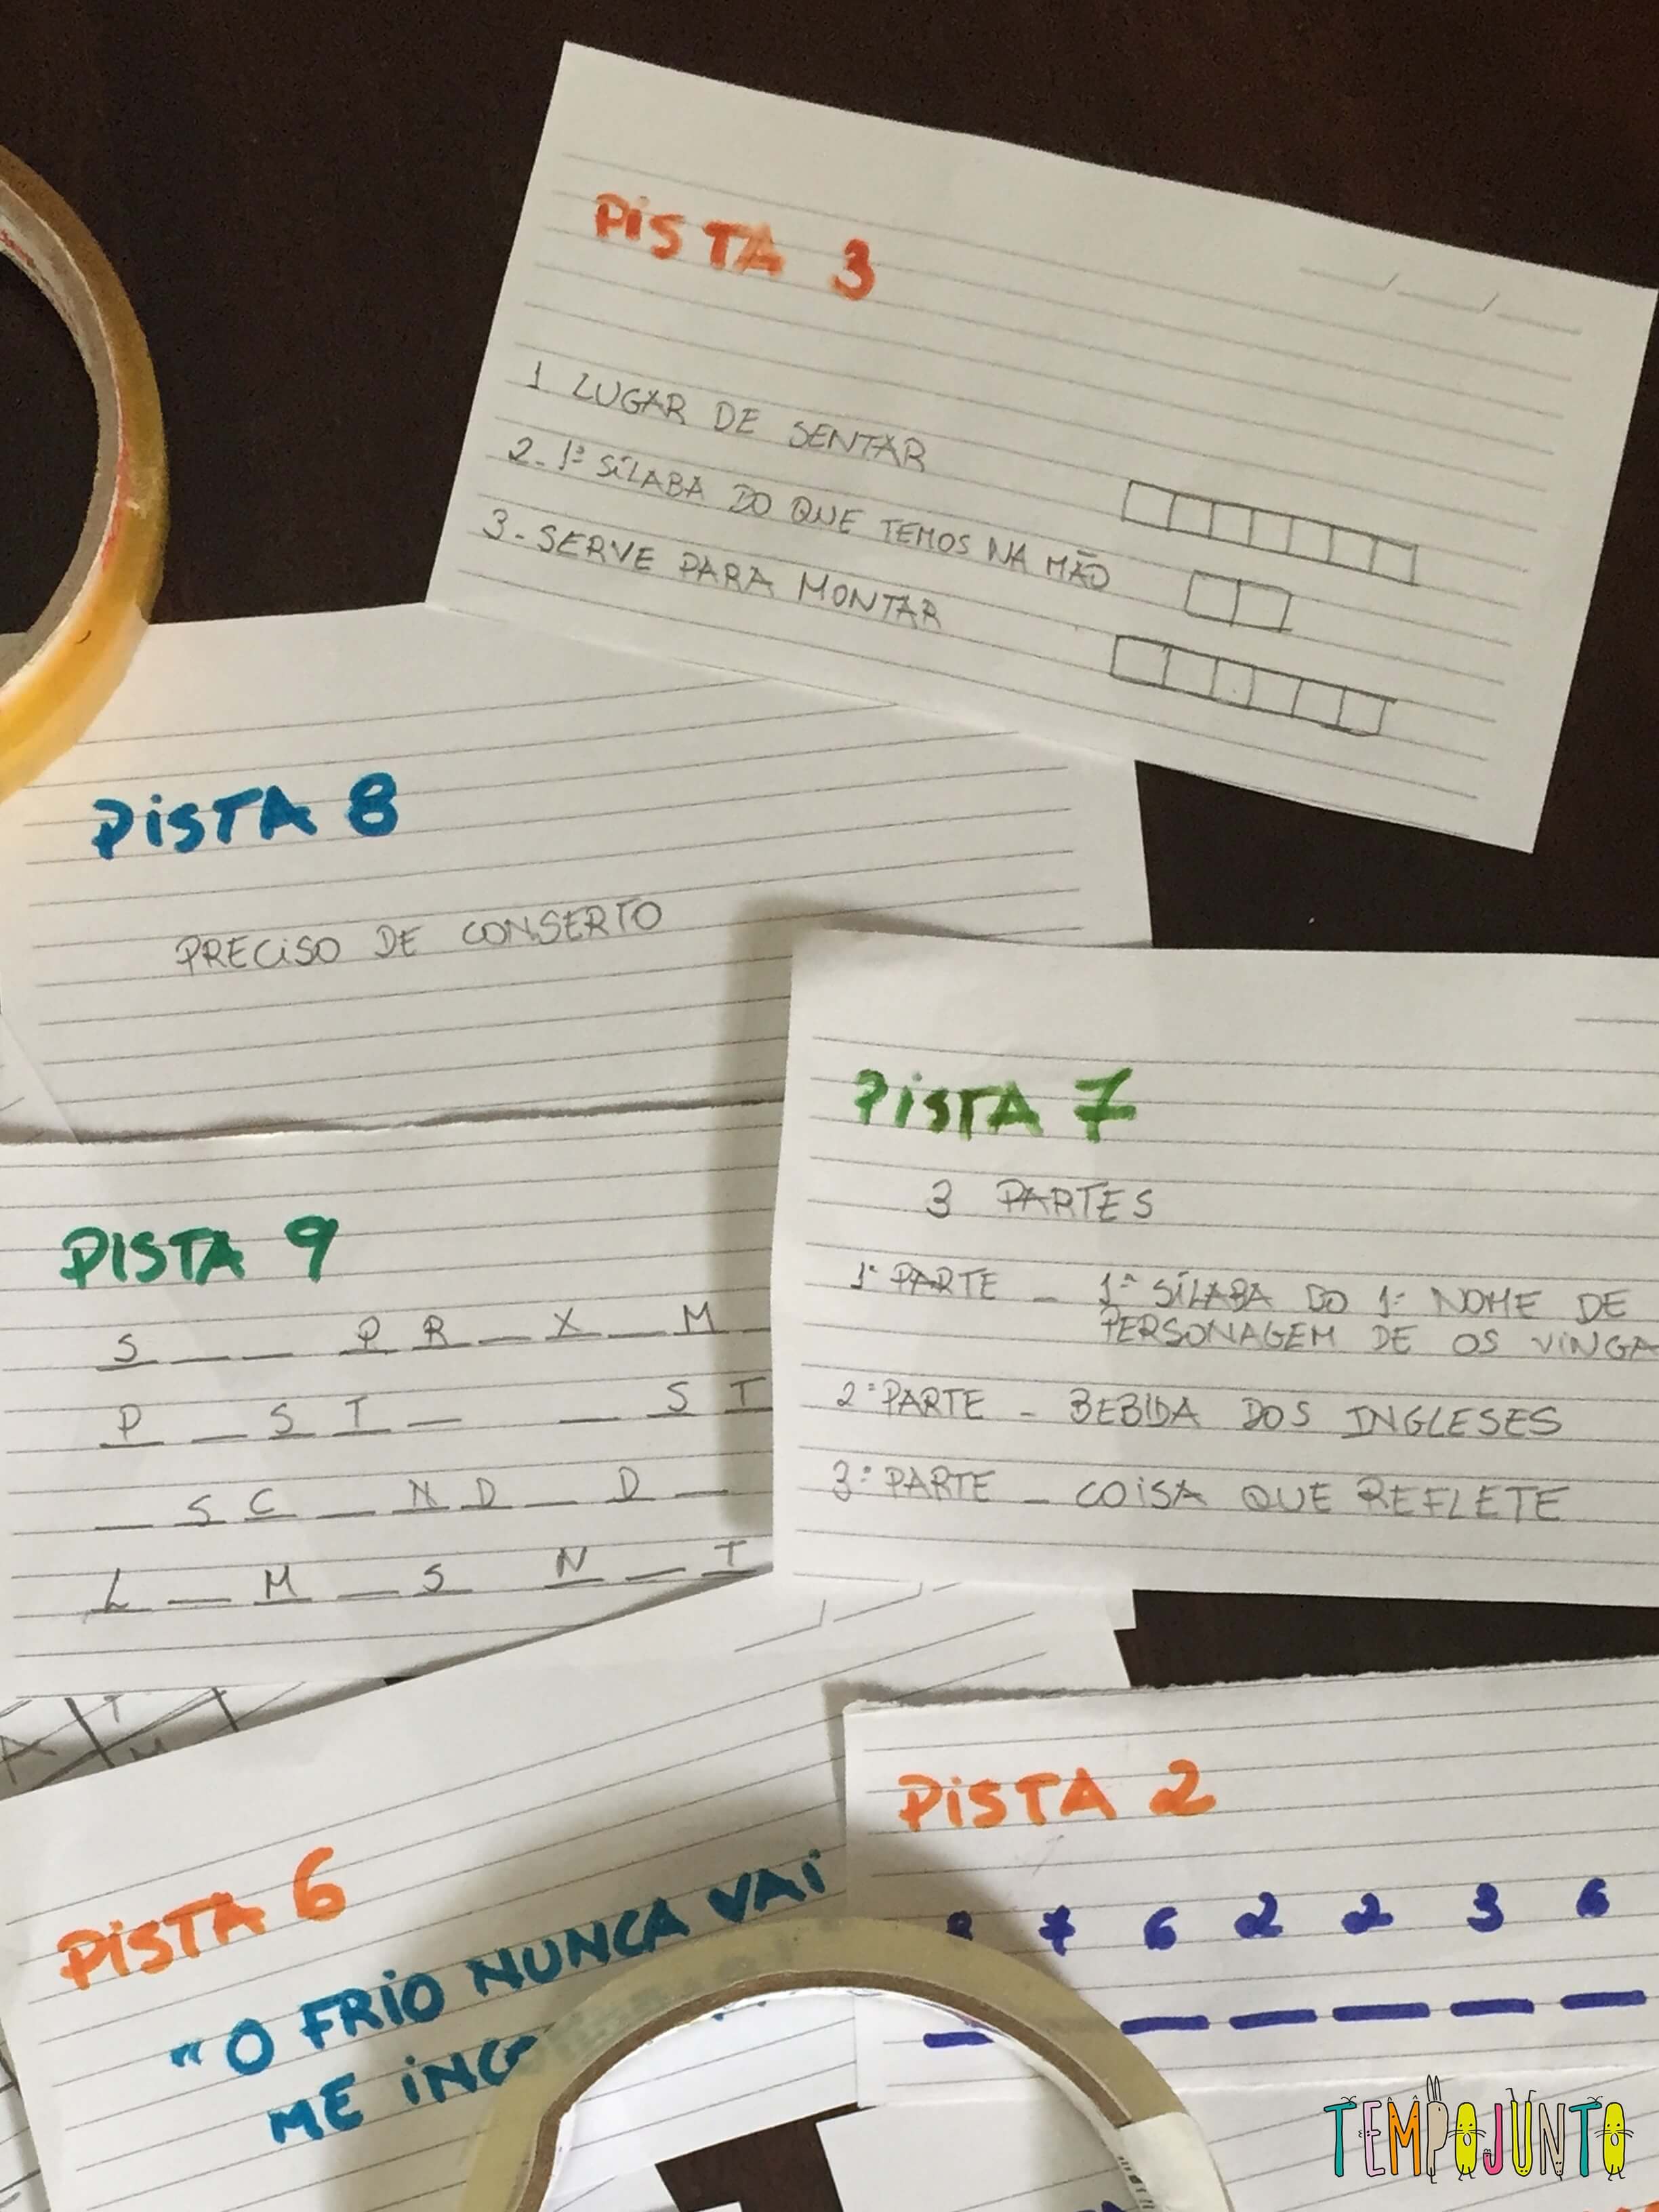 PISTA 3
1 LUGAR DE SENTAR
2- 1ª SÍLABA DO QUE TEMOS NA MÃO
3- SERVE PARA MONTAR
PISTA 8
PRECISO DE CONSERTO
PISTA 7
3 PARTES
1ª PARTE - 1ª SÍLABA DO 1º NOME DE
PERSONAGEM DE OS VINGA
2ª PARTE - BEBIDA DOS INGLESES
3ª PARTE - COISA QUE REFLETE
PISTA 9
S _ _ P R _ X _ M
P _ S T _ _ S T
_ S C _ N D _ D _
L _ M _ S N _ T
PISTA 6
"O FRIO NUNCA VAI
ME
PISTA 2
7 6 2 2 3 6
TEMPOJUNTO